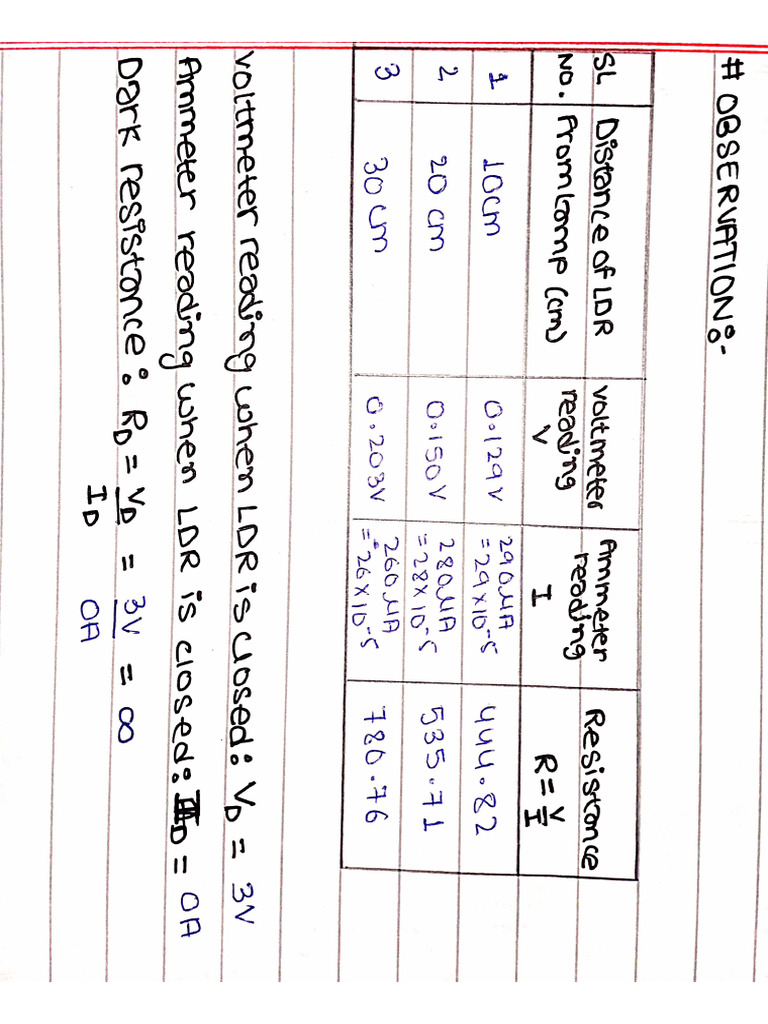 # OBSERVATION:-
SL NO. | Distance of LDR From lamp (cm) | Voltmeter reading V | Ammeter reading I | Resistance R = V/I
1 | 10cm | 0.129V | 290μA = 29×10⁻⁵ | 444.82
2 | 20 cm | 0.150V | 280μA = 28×10⁻⁵ | 535.71
3 | 30 cm | 0.203V | 260μA = 26×10⁻⁵ | 780.76
Voltmeter reading when LDR is closed: V_D = 3V
Ammeter reading when LDR is closed: I_D = 0A
Dark resistance: R_D = V_D/I_D = 3V/0A = ∞